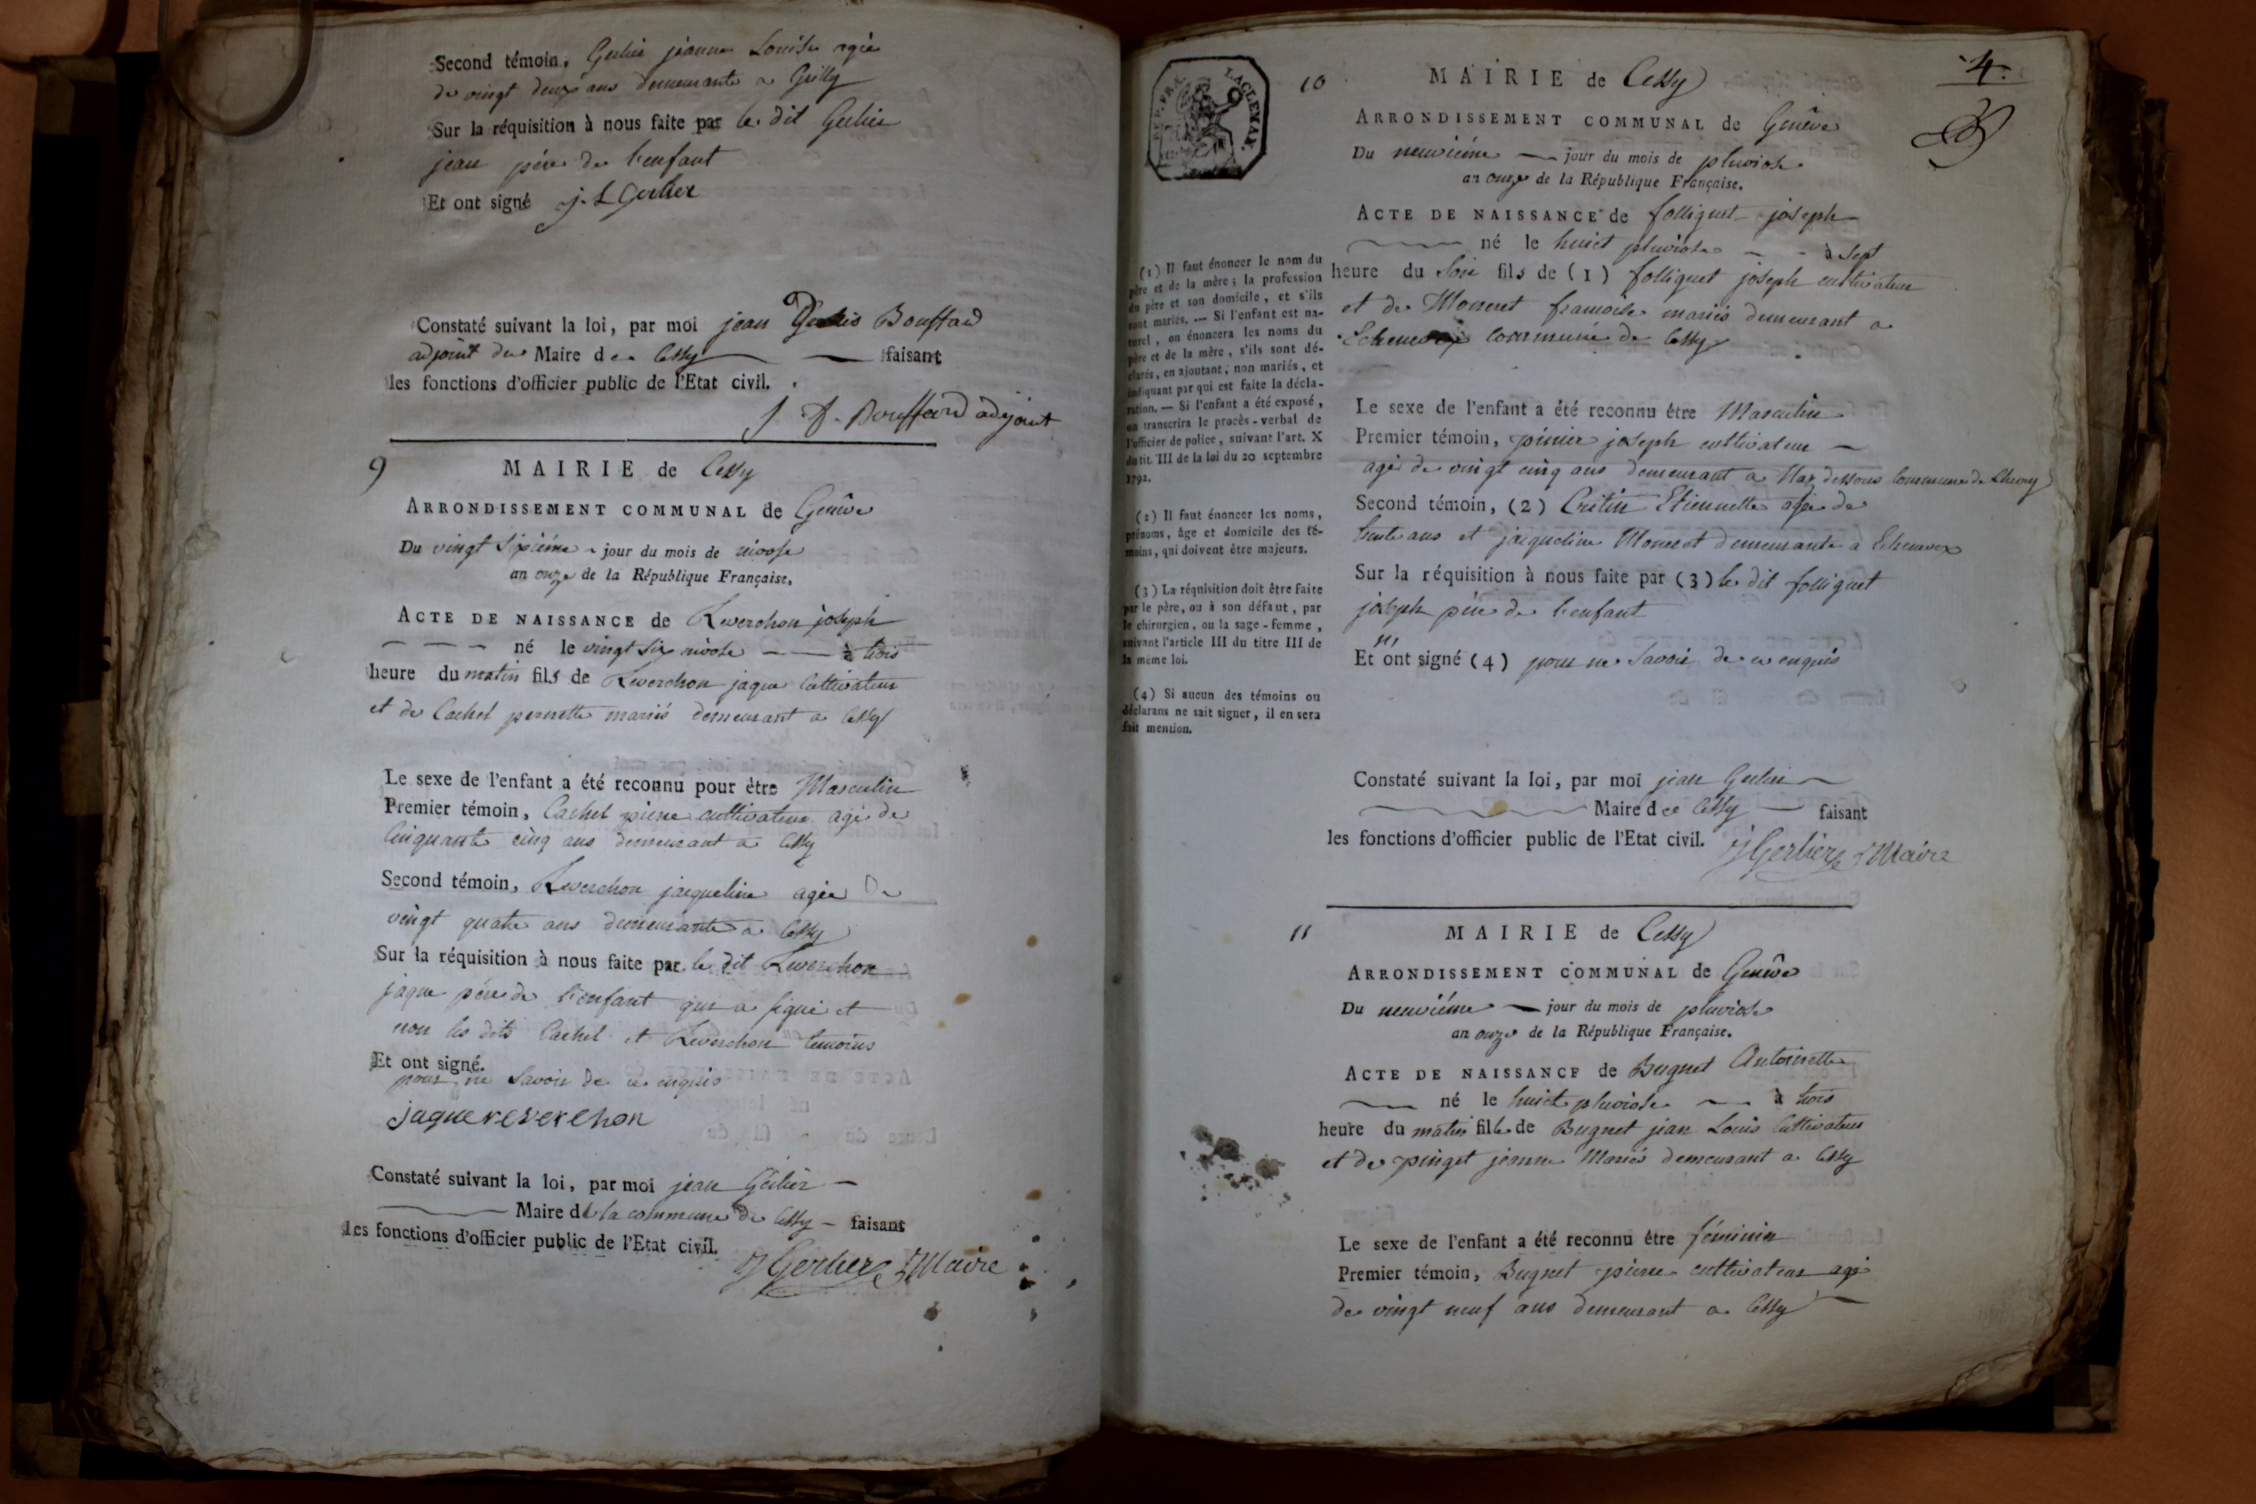 Second témoin, Gerlier jeanne Louise agée
de vingt deux ans demeurante a Grilly
Sur la réquisition à nous faite par le dit Gerlier
jean pére de l'enfant
Et ont signé j. L Gerlier
Constaté suivant la loi, par moi jean Bouffard
adjoint du Maire de Cessy faisant
les fonctions d'officier public de l'Etat civil.
Bouffard adjoint
9 MAIRIE de Cessy
ARRONDISSEMENT COMMUNAL de Genêve
Du vingt sixiéme jour du mois de nivose
an onze de la République Française.
ACTE DE NAISSANCE de Reverchon joseph
né le vingt six nivose à trois
heure du matin fils de Reverchon jaque Cultivateur
et de Cachel pernette mariés demeurant a Cessy
Le sexe de l'enfant a été reconnu pour être Masculin
Premier témoin, Cachel pierre cultivateur agé de
Cinquante cinq ans demeurant a Cessy
Second témoin, Reverchon jacqueline agée De
vingt quatre ans demeurante a Cessy
Sur la réquisition à nous faite par le dit Reverchon
jaque pére de l'enfant qui a signé et
non les dits Cachel et Reverchon temoins
Et ont signé.
pour ne Savoir De ce enquis
jaque reverchon
Constaté suivant la loi, par moi jean Gerlier
Maire de la commune de Cessy faisant
les fonctions d'officier public de l'Etat civil.
j Gerlier Maire
4.
REP. FRA. LAGLENAR.
10 MAIRIE de Cessy
ARRONDISSEMENT COMMUNAL de Genêve
Du neuviéme jour du mois de pluviose
an onze de la République Française.
ACTE DE NAISSANCE de folliguet joseph
né le huict pluviose à sept
heure du Soir fils de (1) folliguet joseph cultivateur
et de Monnet francoise mariés demeurant a
Echenevex commune de Cessy
Le sexe de l'enfant a été reconnu être Masculin
Premier témoin, joseph cultivateur
agé de vingt cinq ans demeurant a dessous Commune de
Second témoin, (2) Cretin Etiennette agée de
trente ans et jacqueline Monnet demeurante a Echenevex
Sur la réquisition à nous faite par (3) le dit folliguet
joseph pére de l'enfant
Et n'ont signé (4) pour ne Savoir de ce enquis
Constaté suivant la loi, par moi jean Gerlier
Maire de Cessy faisant
les fonctions d'officier public de l'Etat civil.
j Gerlier Maire
(1) Il faut énoncer le nom du
père et de la mère ; la profession
du père et son domicile, et s'ils
sont mariés. — Si l'enfant est na-
turel, on énoncera les noms du
père et de la mère, s'ils sont dé-
clarés, en ajoutant, non mariés, et
indiquant par qui est faite la décla-
ration. — Si l'enfant a été exposé,
on transcrira le procès-verbal de
l'officier de police, suivant l'art. X
du tit. III de la loi du 20 septembre
1792.
(2) Il faut énoncer les noms,
prénoms, âge et domicile des té-
moins, qui doivent être majeurs.
(3) La réquisition doit être faite
par le père, ou à son défaut, par
le chirurgien, ou la sage-femme,
suivant l'article III du titre III de
la même loi.
(4) Si aucun des témoins ou
déclarans ne sait signer, il en sera
fait mention.
11 MAIRIE de Cessy
ARRONDISSEMENT COMMUNAL de Genêve
Du neuviéme jour du mois de pluviose
an onze de la République Française.
ACTE DE NAISSANCE de Bugnet Antoinette
né le huict pluviose à trois
heure du matin fille de Bugnet jean Louis Cultivateur
et de pinget jeanne Mariés demeurant a Cessy
Le sexe de l'enfant a été reconnu être féminin
Premier témoin, Bugnet pierre cultivateur agé
de vingt neuf ans demeurant a Cessy